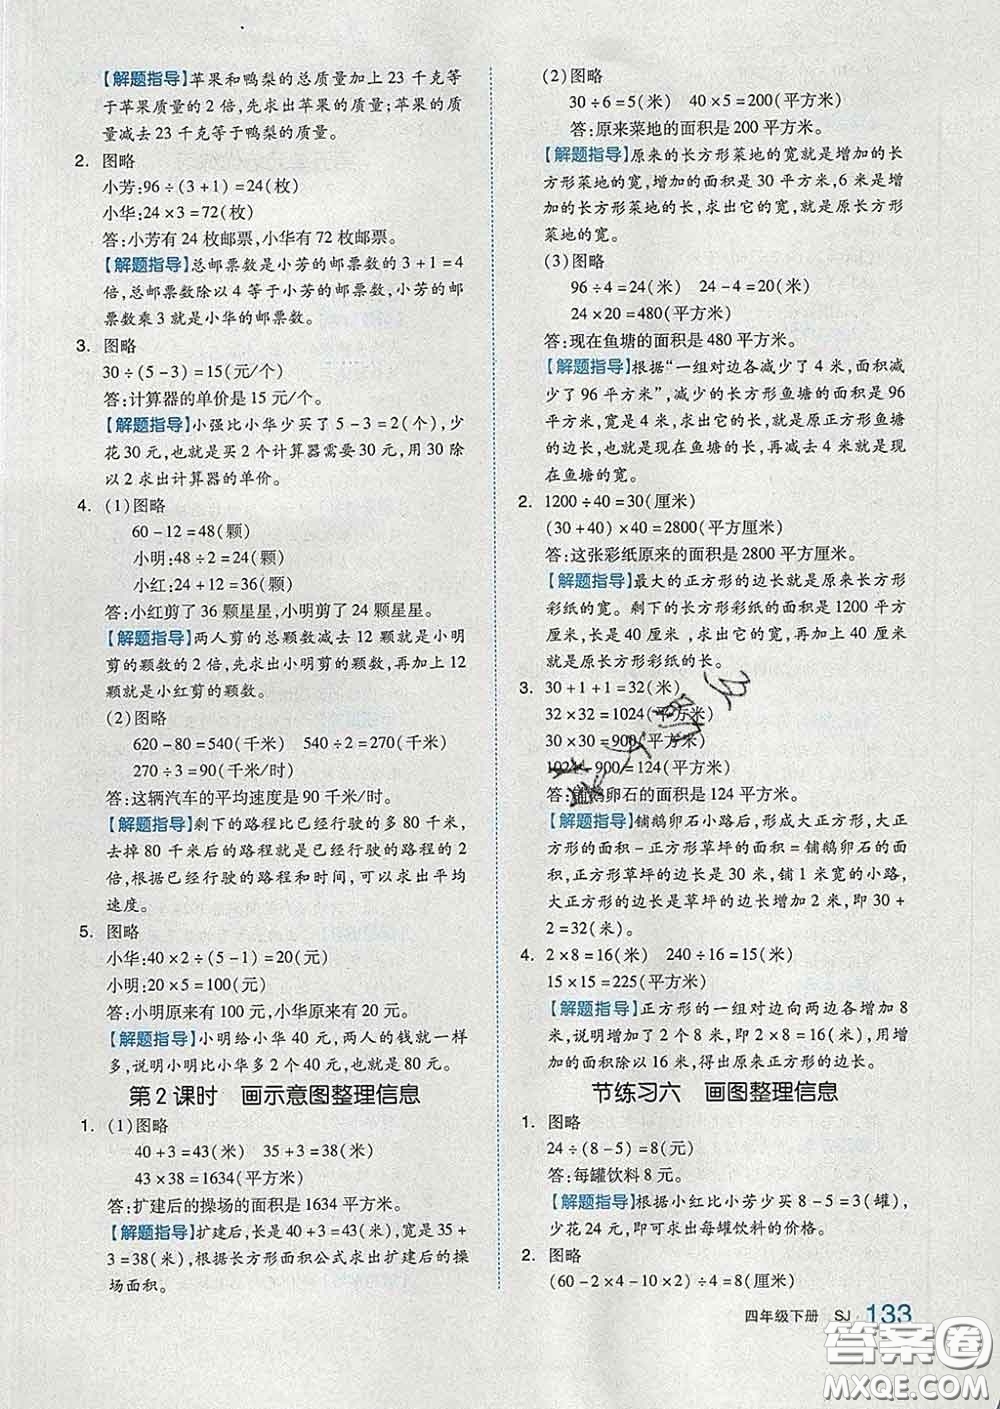 【解题指导】苹果和鸭梨的总质量加上 23 千克等
于苹果质量的 2 倍,先求出苹果的质量;苹果的质
量减去 23 千克等于鸭梨的质量。
2. 图略
小芳:96÷(3+1)=24(枚)
小华:24×3=72(枚)
答:小芳有 24 枚邮票,小华有 72 枚邮票。
【解题指导】总邮票数是小芳的邮票数的 3+1=4
倍,总邮票数除以 4 等于小芳的邮票数,小芳的邮
票数乘 3 就是小华的邮票数。
3. 图略
30÷(5-3)=15(元/个)
答:计算器的单价是 15 元/个。
【解题指导】小强比小华少买了 5-3=2(个),少
花 30 元,也就是买 2 个计算器需要 30 元,用 30 除
以 2 求出计算器的单价。
4. (1)图略
60-12=48(颗)
小明:48÷2=24(颗)
小红:24+12=36(颗)
答:小红剪了 36 颗星星,小明剪了 24 颗星星。
【解题指导】两人剪的总颗数减去 12 颗就是小明
剪的颗数的 2 倍,先求出小明剪的颗数,再加上 12
颗就是小红剪的颗数。
(2)图略
620-80=540(千米) 540÷2=270(千米)
270÷3=90(千米/时)
答:这辆汽车的平均速度是 90 千米/时。
【解题指导】剩下的路程比已经行驶的多 80 千米,
去掉 80 千米后的路程就是已经行驶的路程的 2
倍,根据已经行驶的路程和时间,可以求出平均
速度。
5. 图略
小华:40×2÷(5-1)=20(元)
小明:20×5=100(元)
答:小明原来有 100 元,小华原来有 20 元。
【解题指导】小明给小华 40 元,两人的钱就一样
多,说明小明比小华多 2 个 40 元,也就是 80 元。
第 2 课时 画示意图整理信息
1. (1)图略
40+3=43(米) 35+3=38(米)
43×38=1634(平方米)
答:扩建后的操场的面积是 1634 平方米。
【解题指导】扩建后,长是 40+3=43(米),宽是 35+
3=38(米),根据长方形面积公式求出扩建后的操
场面积。
(2)图略
30÷6=5(米) 40×5=200(平方米)
答:原来菜地的面积是 200 平方米。
【解题指导】原来的长方形菜地的宽就是增加的长
方形菜地的宽,增加的面积是 30 平方米,6 米是增
加的长方形菜地的长,求出它的宽,就是原长方形
菜地的宽。
(3)图略
96÷4=24(米) 24-4=20(米)
24×20=480(平方米)
答:现在鱼塘的面积是 480 平方米。
【解题指导】根据“一组对边各减少了 4 米,面积减
少了 96 平方米”,减少的长方形鱼塘的面积是 96
平方米,宽是 4 米,求出它的长,就是原正方形鱼塘
的边长,也就是现在鱼塘的长,再减去 4 米就是现
在鱼塘的宽。
2. 1200÷40=30(厘米)
(30+40)×40=2800(平方厘米)
答:这张彩纸原来的面积是 2800 平方厘米。
【解题指导】最大的正方形的边长就是原来长方形
彩纸的宽。剩下的长方形彩纸的面积是 1200 平方
厘米,长是 40 厘米,求出它的宽,再加上 40 厘米
就是原长方形彩纸的长。
3. 30+1+1=32(米)
32×32=1024(平方米)
30×30=900(平方米)
1024-900=124(平方米)
答:铺鹅卵石的面积是 124 平方米。
【解题指导】铺鹅卵石小路后,形成大正方形,大正方
形的面积-正方形草坪的面积=铺鹅卵石的面积。
正方形草坪的边长是 30 米,铺 1 米宽的小路,
大正方形的边长是草坪的边长增加 2 米,即 30+
2=32(米)。
4. 2×8=16(米) 240÷16=15(米)
15×15=225(平方米)
【解题指导】正方形的一组对边向两边各增加 8
米,说明增加了 2 个 8 米,即 2×8=16(米),用增
加的面积除以 16 米,得出原来正方形的边长。
节练习六 画图整理信息
1. 图略
24÷(8-5)=8(元)
答:每罐饮料 8 元。
【解题指导】根据小红比小芳少买 8-5=3(罐),
少花 24 元,即可求出每罐饮料的价格。
2. 图略
(60-2×4-10×2)÷4=8(厘米)
四年级下册 SJ 133
答案圈
MXQE.COM